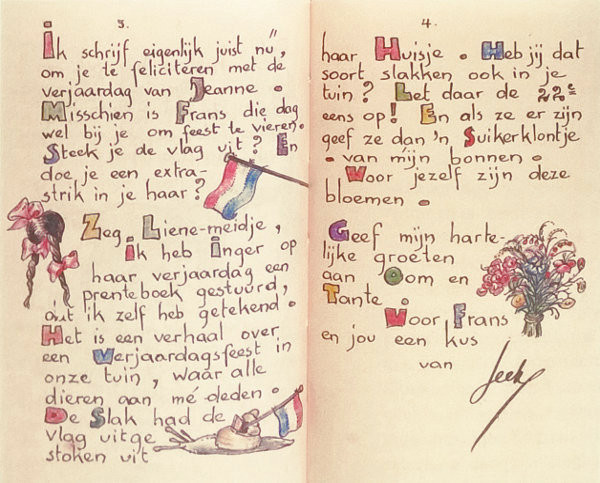 3.
Ik schrijf eigenlijk juist "nū",
om je te feliciteren met de
verjaardag van Jeanne.
Misschien is Frans die dag
wel bij je om feest te vieren.
Steek je de vlag uit? En
doe je een extra-
strik in je haar?
Zeg, Liene-meidje,
ik heb Inger op
haar verjaardag een
prenteboek gestuurd,
dát ik zelf heb getekend.
Het is een verhaal over
een verjaardagsfeest in
onze tuin, waar alle
dieren aan mé-deden.
De Slak had de
vlag uitge
stoken uit
4.
haar Huisje. Heb jij dat
soort slakken ook in je
tuin? Let daar de 22e
eens op! En als ze er zijn
geef ze dan 'n Suikerklontje
van mijn bonnen.
Voor jezelf zijn deze
bloemen.
Geef mijn harte-
lijke groeten
aan Oom en
Tante.
Voor Frans
en jou een kus
van